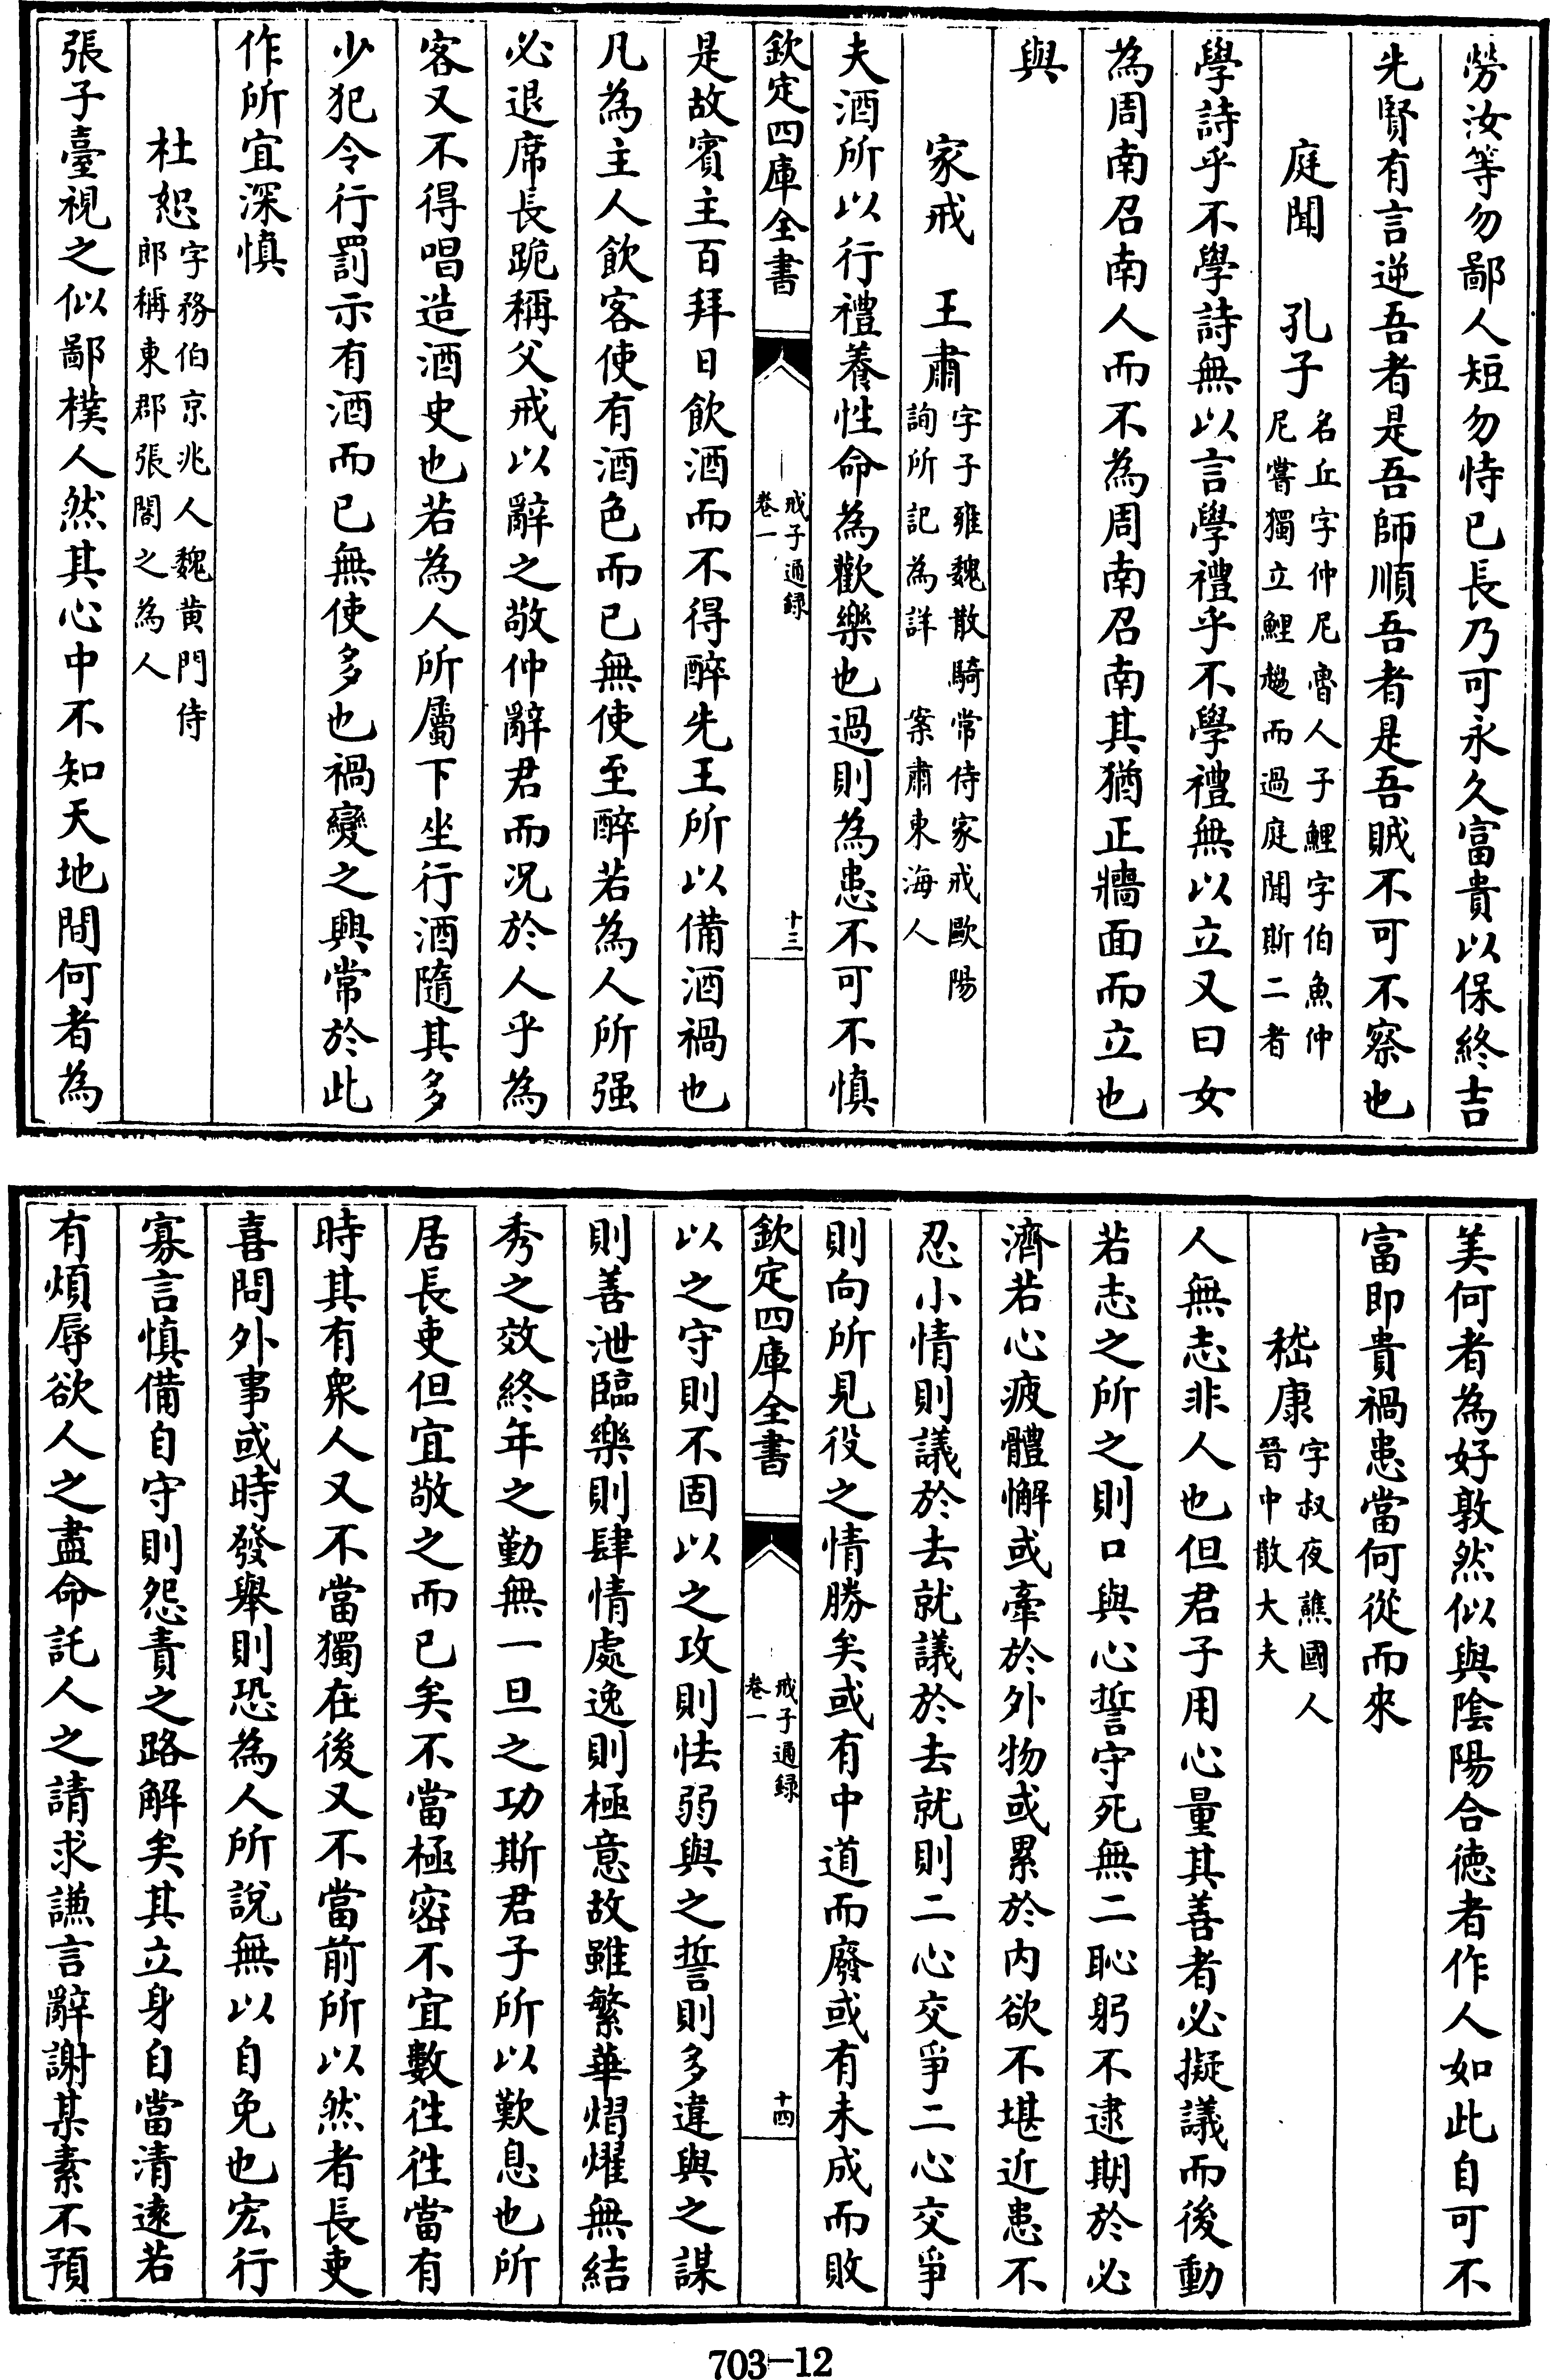 勞汝等勿鄙人短勿恃已長乃可永久富貴以保終吉
先賢有言逆吾者是吾師順吾者是吾賊不可不察也
庭聞　孔子
名丘字仲尼魯人子鯉字伯魚仲
尼嘗獨立鯉趨而過庭聞斯二者
學詩乎不學詩無以言學禮乎不學禮無以立又曰女
為周南召南人而不為周南召南其猶正牆面而立也
與
家戒　王肅
字子雍魏散騎常侍家戒歐陽
詢所記為詳　案肅東海人
夫酒所以行禮養性命為歡樂也過則為患不可不慎
欽定四庫全書
戒子通録
卷一
十三
是故賓主百拜日飲酒而不得醉先王所以備酒禍也
凡為主人飲客使有酒色而已無使至醉若為人所强
必退席長跪稱父戒以辭之敬仲辭君而况於人乎為
客又不得唱造酒史也若為人所屬下坐行酒隨其多
少犯令行罰示有酒而已無使多也禍變之興常於此
作所宜深慎
杜恕
字務伯京兆人魏黄門侍
郎稱東郡張閣之為人
張子臺視之似鄙樸人然其心中不知天地間何者為
美何者為好敦然似與陰陽合徳者作人如此自可不
富即貴禍患當何從而來
嵇康
字叔夜譙國人
晉中散大夫
人無志非人也但君子用心量其善者必擬議而後動
若志之所之則口與心誓守死無二恥躬不逮期於必
濟若心疲體懈或牽於外物或累於内欲不堪近患不
忍小情則議於去就議於去就則二心交爭二心交爭
則向所見役之情勝矣或有中道而廢或有未成而敗
欽定四庫全書
戒子通録
卷一
十四
以之守則不固以之攻則怯弱與之誓則多違與之謀
則善泄臨樂則肆情處逸則極意故雖繁華熠燿無結
秀之效終年之勤無一旦之功斯君子所以歎息也所
居長吏但宜敬之而已矣不當極密不宜數往往當有
時其有衆人又不當獨在後又不當前所以然者長吏
喜問外事或時發舉則恐為人所說無以自免也宏行
寡言慎備自守則怨責之路解矣其立身自當清逺若
有煩辱欲人之盡命託人之請求謙言辭謝某素不預
703—12